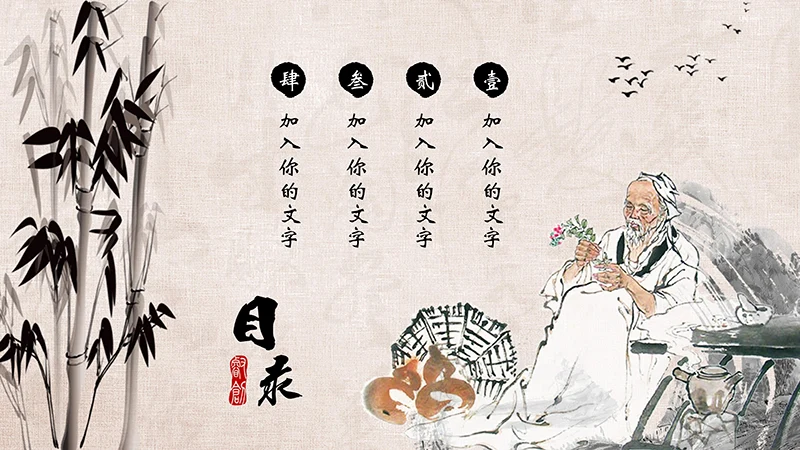 壹
加入你的文字
贰
加入你的文字
叁
加入你的文字
肆
加入你的文字
目录
睿创